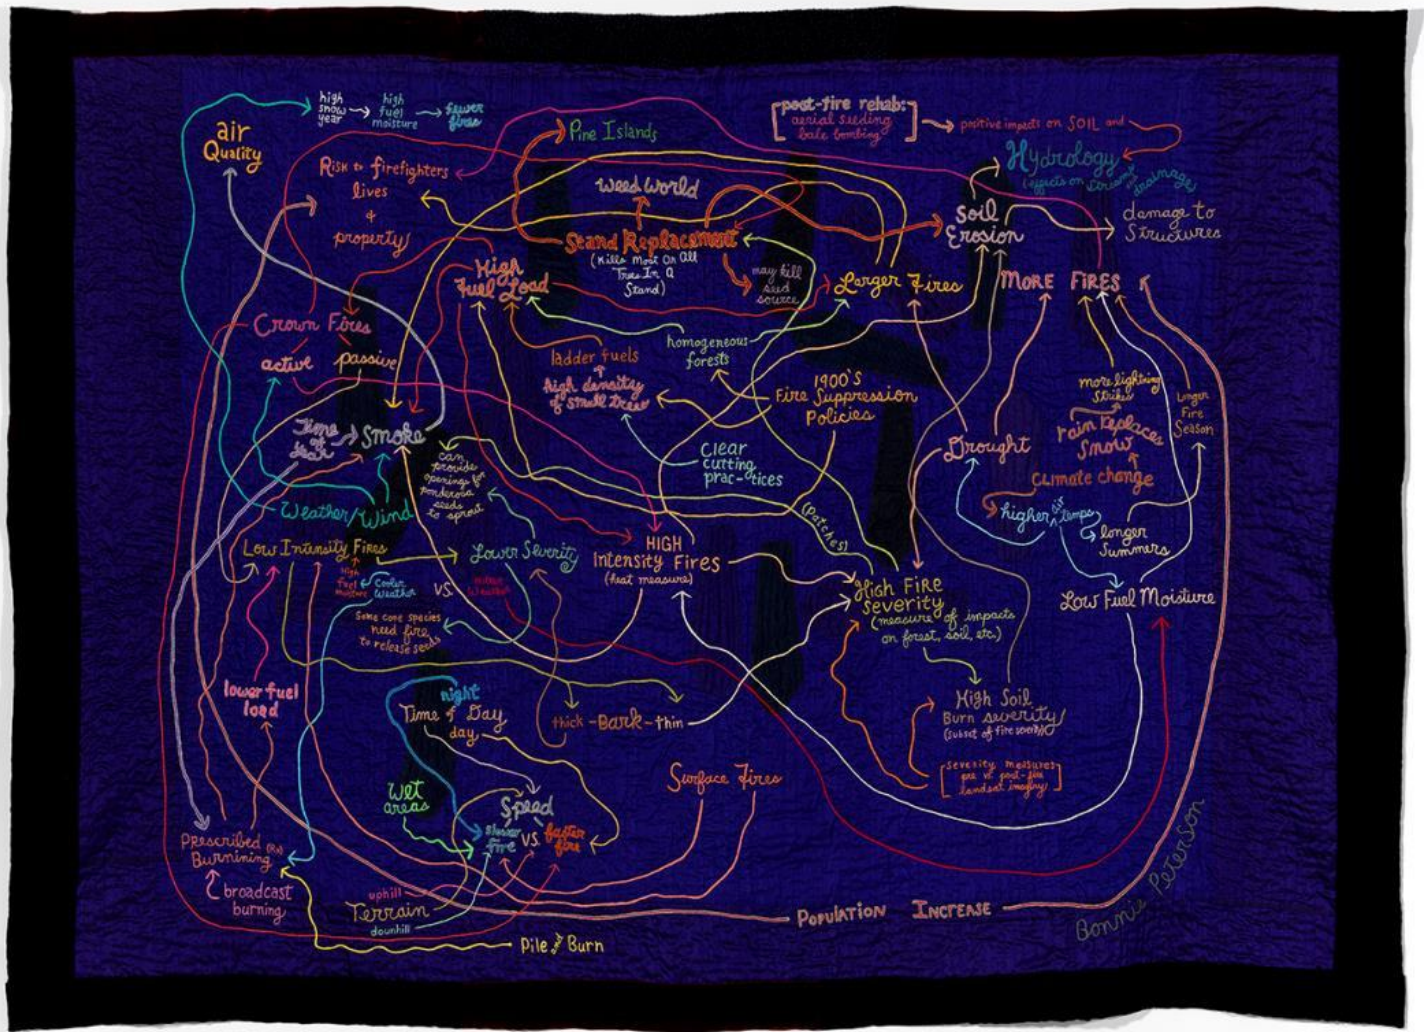 high
snow
year
high
fuel
moisture
fewer
fires
air
Quality
Pine Islands
post-fire rehab:
aerial seeding
bale bombing
positive impacts on SOIL and
Hydrology
(effects on streams and drainage
Risk to firefighters
lives
&
property
Weed World
Stand Replacement
(Kills Most Or All
Trees In A
Stand)
may kill
seed
source
Soil
Erosion
damage to
Structures
High
Fuel Load
Larger Fires
MORE FIRES
Crown Fires
active
passive
ladder fuels
high density
of small trees
homogeneous
forests
1900'S
Fire Suppression
Policies
more lightning
strikes
rain replaces
Snow
Climate change
Longer
Fire
Season
Time
of
Year
Smoke
can
provide
openings for
ponderosa
seeds
to sprout
Clear
cutting
prac-tices
Drought
higher air temps
longer
Summers
Weather/Wind
(patches)
Low Intensity Fires
High
fuel
moisture
Cooler
Weather
VS.
Lower Severity
HIGH
Intensity Fires
(heat measure)
High FIRE
Severity
(measure of impacts
on forest, soil, etc)
Low Fuel Moisture
Some cone species
need fire
to release seeds
lower fuel
load
night
Time of Day
day
thick-Bark-thin
High Soil
Burn severity
(subset of fire severity)
severity measures
pre vs. post-fire
landsat imagery
Surface Fires
Wet
areas
Speed
slower
fire
VS.
faster
fire
Prescribed (Rx)
Burnining
broadcast
burning
uphill
Terrain
downhill
Pile and Burn
POPULATION INCREASE
Bonnie Peterson